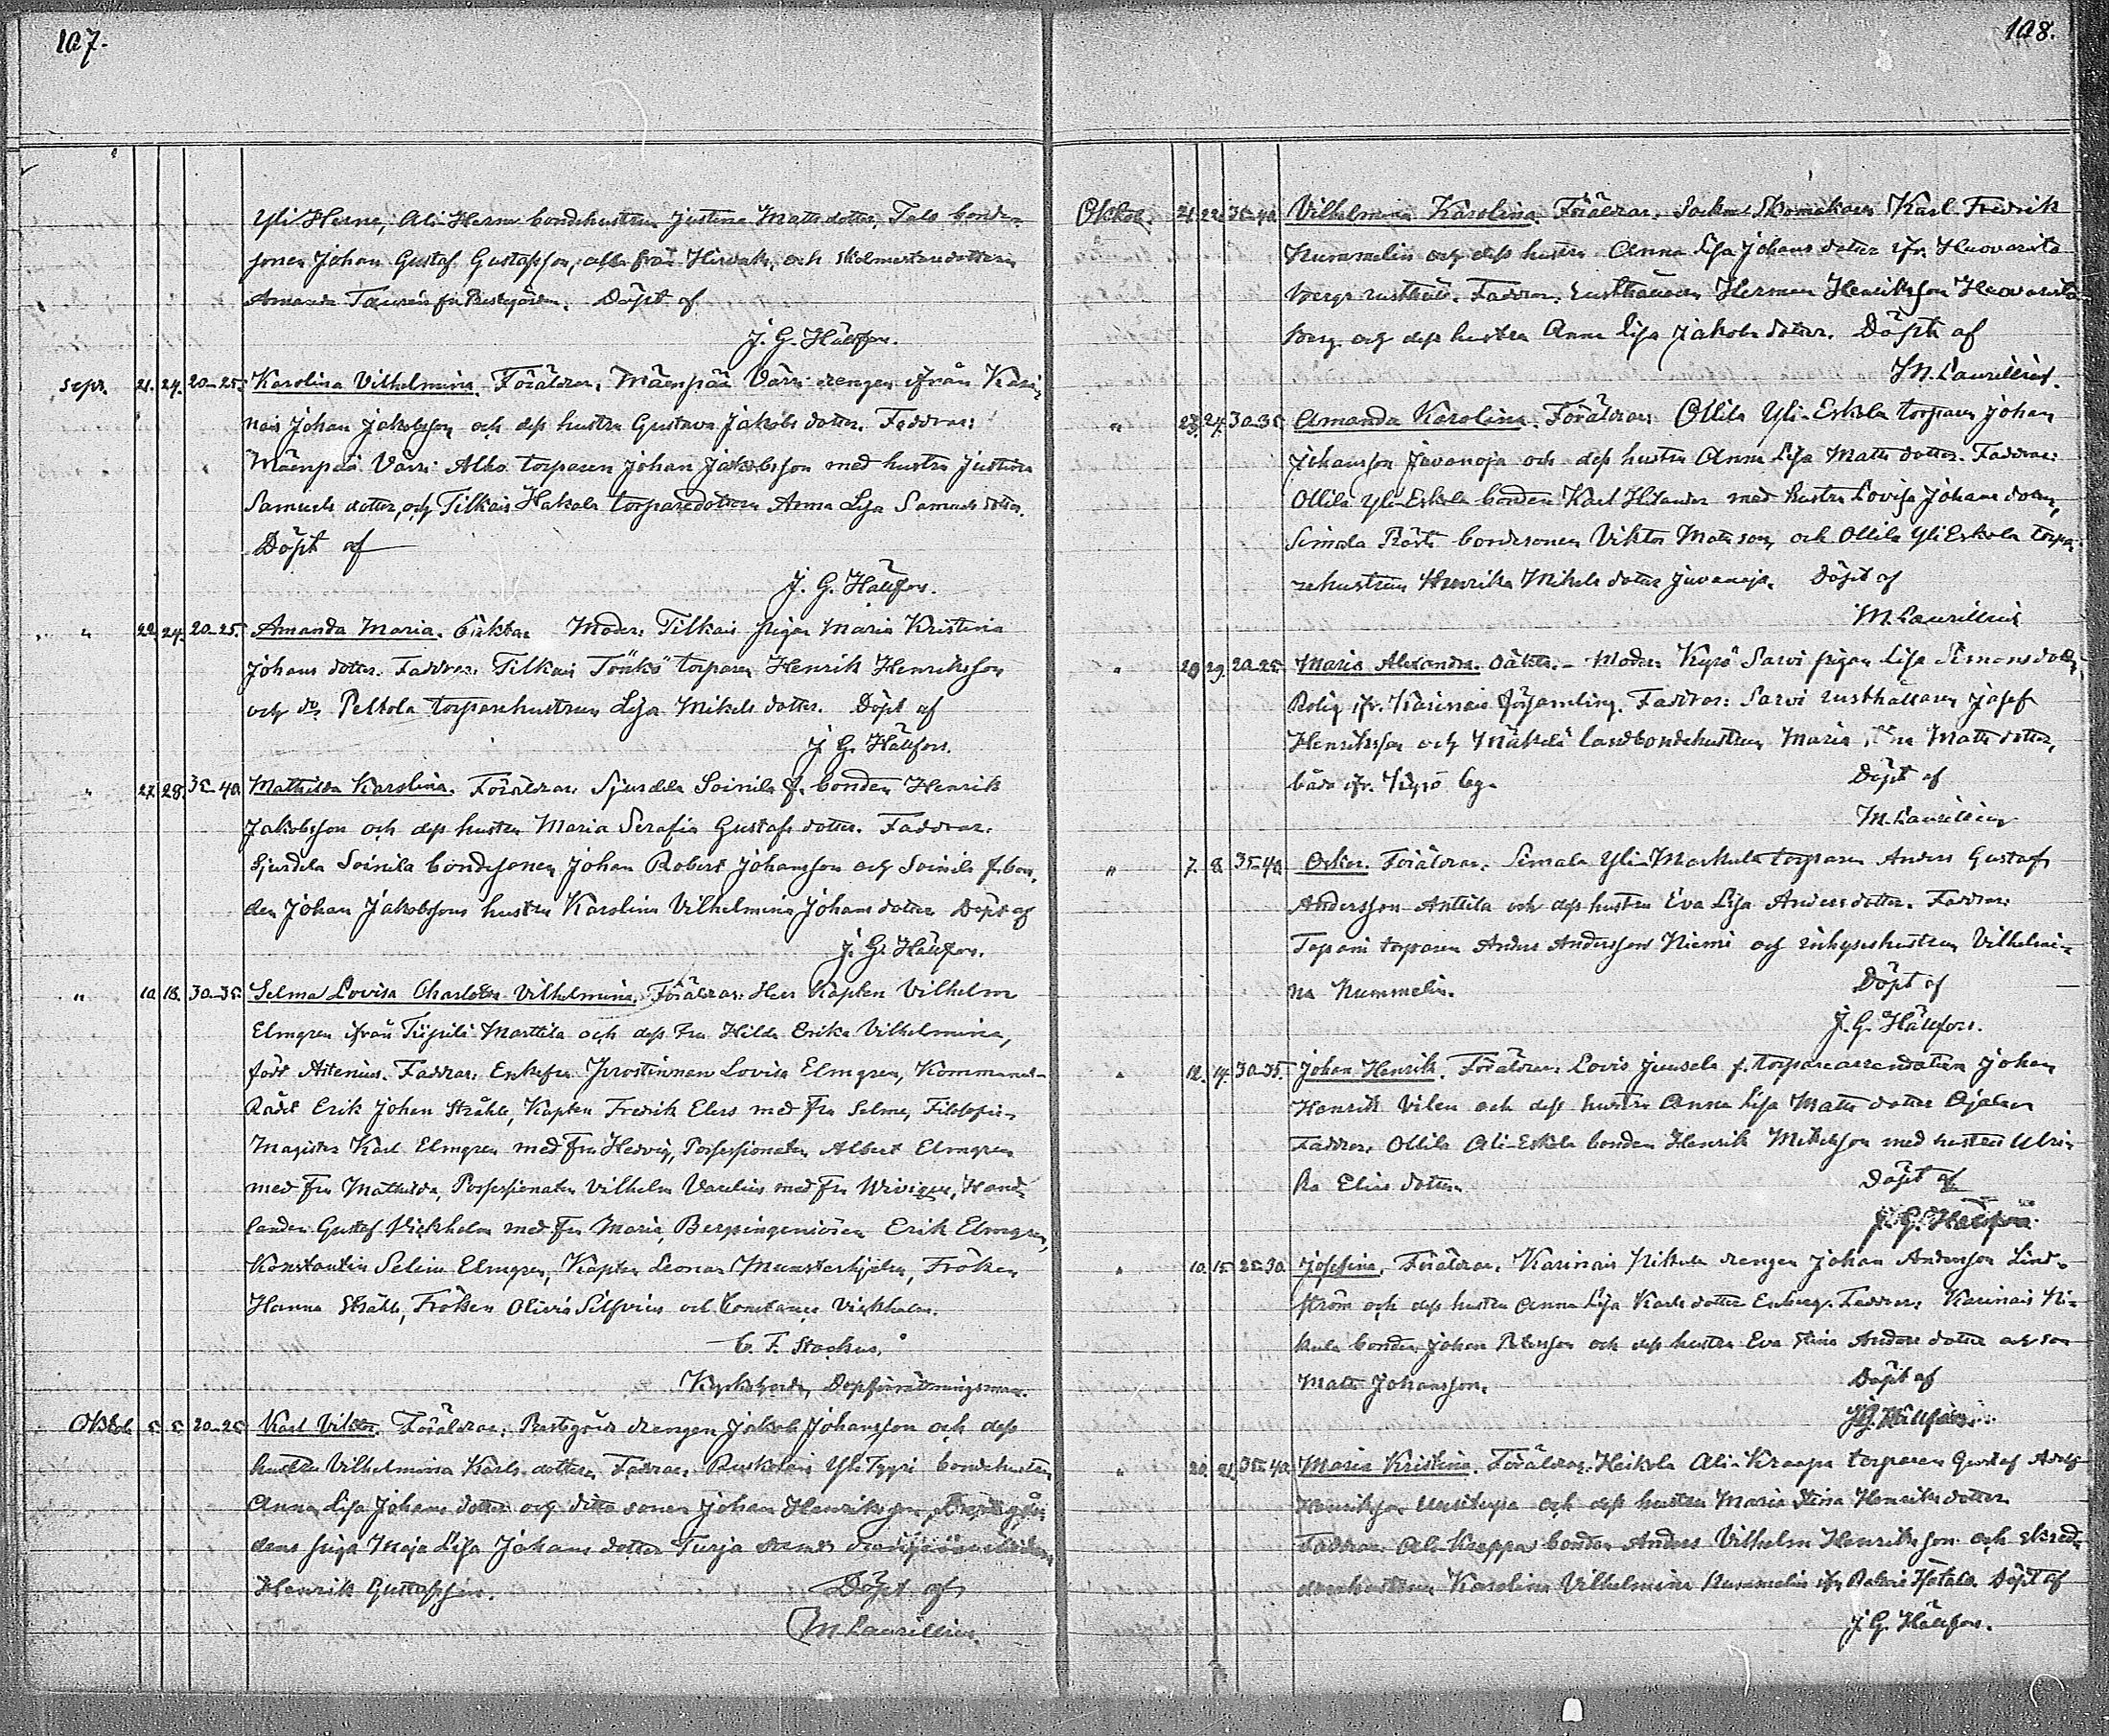 107.
Yli Herne, Ali Herne bondehustrun Justina Matts dotter, Talo bonde-
sonen Johan Gustaf Gustafsson, alla från och skolmästaredottern
Amanda fr Prestgården. Döpt af
J. G. Hällfors.
Sept. 21. 24. 20-25. Karolina Vilhelmina. Föräldrar: Mäenpää Värri drengen ifrån Kari-
nais Johan Jakobsson och dess hustru Gustava Jakobs dotter. Faddrar:
Mäenpää Värri Alho torparen Johan Jakobsson med hustru Justina
Samuels dotter, och Tilkais Hakala torparedottern Anna Lisa Samuels dotter.
Döpt af
J. G. Hällfors.
" 22. 24. 20-25. Amanda Maria. Oäkta. Moder: Tilkais pigan Maria Kristina
Johans dotter. Faddrar: Tilkais Tönkö torparen Henrik Henriksson
och do Peltola torparehustrun Lisa Mikels dotter. Döpt af
J G. Hällfors.
" 27. 28. 35-40. Mathilda Karolina. Föräldrar: Sjurdela Soinila f. bonden Henrik
Jakobsson och dess hustru Maria Serafia Gustafs dotter. Faddrar:
Sjurdela Soinila bondesonen Johan Robert Johansson och Soinila f. bon-
den Johan Jakobssons hustru Karolina Vilhelmina Johans dotter Döpt af
J. G. Hällfors.
" 10. 18. 30-35. Selma Lovisa Charlotta Vilhelmina. Föräldrar: Herr Kapten Vilhelm
Elmgren ifrån Marttila och dess Fru Hilda Erika Vilhelmina,
född Artenius. Faddrar: Enkefru Prostinnan Lovisa Elmgren, Kommerse-
Rådet Erik Johan Stråhle, Kapten Fredrik Elers med Fru Selma, Filosofie-
Magister Karl Elmgren med Fru Hedvig, Possessionaten Albert Elmgren
med Fru Mathilda, Possessionaten Vilhelm med Fru Hand-
landen Gustaf Vickholm med Fru Maria, Bergsingeniören Erik Elmgren,
Konstantin Selim Elmgren, Kapten Leonar Munsterhjelm, Fröken
Hanna Stråhle, Fröken Olivia Silfvius och Constance Vickholm.
C. F. Stockus,
Kyrkoherde, Dopförrättningsman.
Oktob. 5. 5. 20-25. Karl Viktor. Föräldrar: Prestgårds drengen Jakob Johansson och dess
hustru Vilhelmina Karls dotter. Faddrar: Yli Tyyri bondehustrun
Anna Lisa Johans dotter och ditto sonen Johan Henriksson, Prestgår-
dens piga Maja Lisa Johans dotter Turja samt
Henrik Gustafsson. Döpt af
M. Laurillius.
108.
Oktob. 21. 22. 35-40. Vilhelmina Karolina. Föräldrar: Sockne Skomakaren Karl Fredrik
Nummelin och dess hustru Anna Lisa Johans dotter ifr.
bergs rusthåll. Faddrar: Rusthållaren Herman Henriksson
berg och dess hustru Anna Lisa Jakobs dotter. Döpt af
M. Laurillius.
" 23. 24. 30-35. Amanda Karolina. Föräldrar: Ollila Yli-Eskola torparen Johan
Johansson Juvanoja och dess hustru Anna Lisa Matts dotter. Faddrar:
Ollila Yli Eskola bonden Karl med hustru Lovisa Johans dotter,
Simala bondesonen Viktor Matsson, och Ollila Yli Eskola torpa-
rehustrun Henrika Mikels dotter Juvanoja. Döpt af
M. Laurillius
" 20 29. 20-25. Maria Alexandra. Oäkta. - Moder: Kyrö Sarvi pigan Lisa Simons dotter
Rolig ifr. Karinais församling. Faddrar: Sarvi rusthållaren Josef
Henriksson och Mäkelä landbondehustrun Maria Matts dotter,
båda ifr. Kyrö by. Döpt af
M. Laurillius
" 7. 8. 35-40. Oskar. Föräldrar: Simala Yli-Markula torparen Anders Gustaf
Andersson Anttila och dess hustru Eva Lisa Anders dotter. Faddrar:
Tapani torparen Anders Andersson Niemi och inhyseshustrun Vilhelmi-
na Nummelin. Döpt af
J. G. Hällfors.
" 12. 14. 30-35. Johan Henrik. Föräldrar: Lovis Juusela f. torparearrendatorn Johan
Henrik Vilen och dess hustru Anna Lisa Matts dotter Ojanen
Faddrar: Ollila Ali-Eskola bonden Henrik Mikelsson med hustru Ulri-
ka Elias dotter. Döpt af
J. G. Hällfors
" 10. 15. 25-30. Josefina. Föräldrar: Karinais Nikula drengen Johan Andersson Lind-
ström och dess hustru Anna Lisa Karls dotter Enberg. Faddrar: Karinais Ni-
kula bonden Johan Petersson och dess hustru Eva Stina Anders dotter och son
Matts Johansson. Döpt af
J.G. Hällfors.
" 20. 21. 35-40. Maria Kristina. Föräldrar: Heikola Ali-Kraapa torparen Gustaf Adolf
Henriksson Uusitupa och dess hustru Maria Stina Henriks dotter.
Faddrar: Ali-Krappa bonden Anders Vilhelm Henriksson och skred-
darehustrun Karolina Vilhelmina Nummelin ifr Döpt af
J. G. Hällfors.